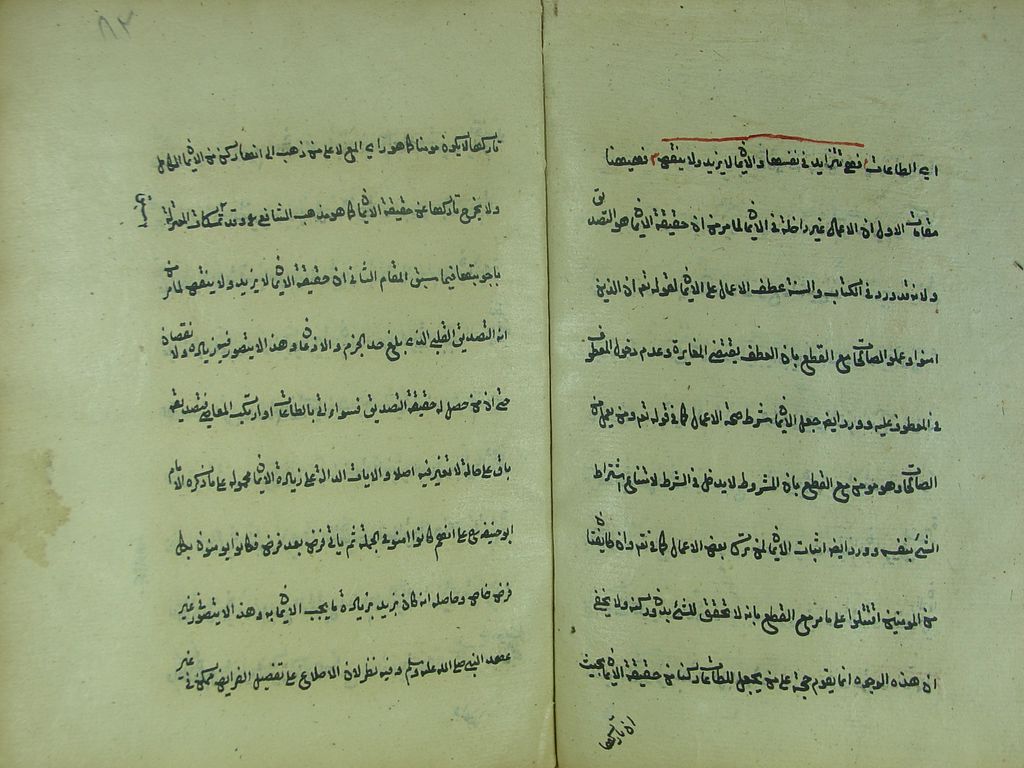 اي الطاعات فهي تتزايد في نفسها والايمان لا يزيد ولا ينقص فههنا
مقامات الاول ان الاعمال غير داخلة في الايمان لما مر من ان حقيقة الايمان هو التصديق
ولانه قد ورد في الكتاب والسنة عطف الاعمال على الايمان لقوله تع ان الذين
امنوا وعملوا الصالحات مع القطع بان العطف يقتضي المغايرة وعدم دخول المعطوف
في المعطوف عليه وورد ايضا جعل الايمان شرط صحة الاعمال كما في قوله تع ومن يعمل من
الصالحات وهو مومن مع القطع بان المشروط لا يدخل في الشرط لامتناع اشتراط
الشئ بنفسه وورد ايضا اثبات الايمان لمن ترك بعض الاعمال كما في تع وان طايفتان
من المومنين اقتتلوا على ما مر مع القطع بانه لا تحقق للشئ بدون ركنه ولا يخفى
ان هذه الوجوه انما يقوم حجة على من يجعل الطاعات ركنا من حقيقة الايمان بحيث
ان تاركها
٨٢
تاركها لا يكون مومنا كما هو راي المع لا على من ذهب الى انها ركن من الايمان الكامل
ولا يخرج تاركها عن حقيقة الايمان كما هو مذهب الشافعي وقد تمسكات المعتزلة
باجوبتها فيما سبق المقام الثاني ان حقيقة الايمان لا يزيد ولا ينقص لما مر من
انه التصديق القلبي الذي بلغ حد الجزم والاذعان وهذا لا يتصور فيه زيادة ولا نقصان
حتى ان من حصل له حقيقة التصديق فسواء اتى بالطاعات او ارتكب المعاصي فتصديقه
باق على حاله لا تغير فيه اصلا والايات الدالة على زيادة الايمان محمولة على ما ذكره الامام
ابو حنيفة رح انهم كانوا امنوا في الجملة ثم ياتي فرض بعد فرض فكانوا يومنون بكل
فرض خاص وحاصله انه كان يزيد بزيادة ما يجب الايمان به وهذا لا يتصور في غير
عهد النبي صلى الله عليه وسلم وفيه نظر لان الاطلاع على تفصيل الفرايض ممكن في غير